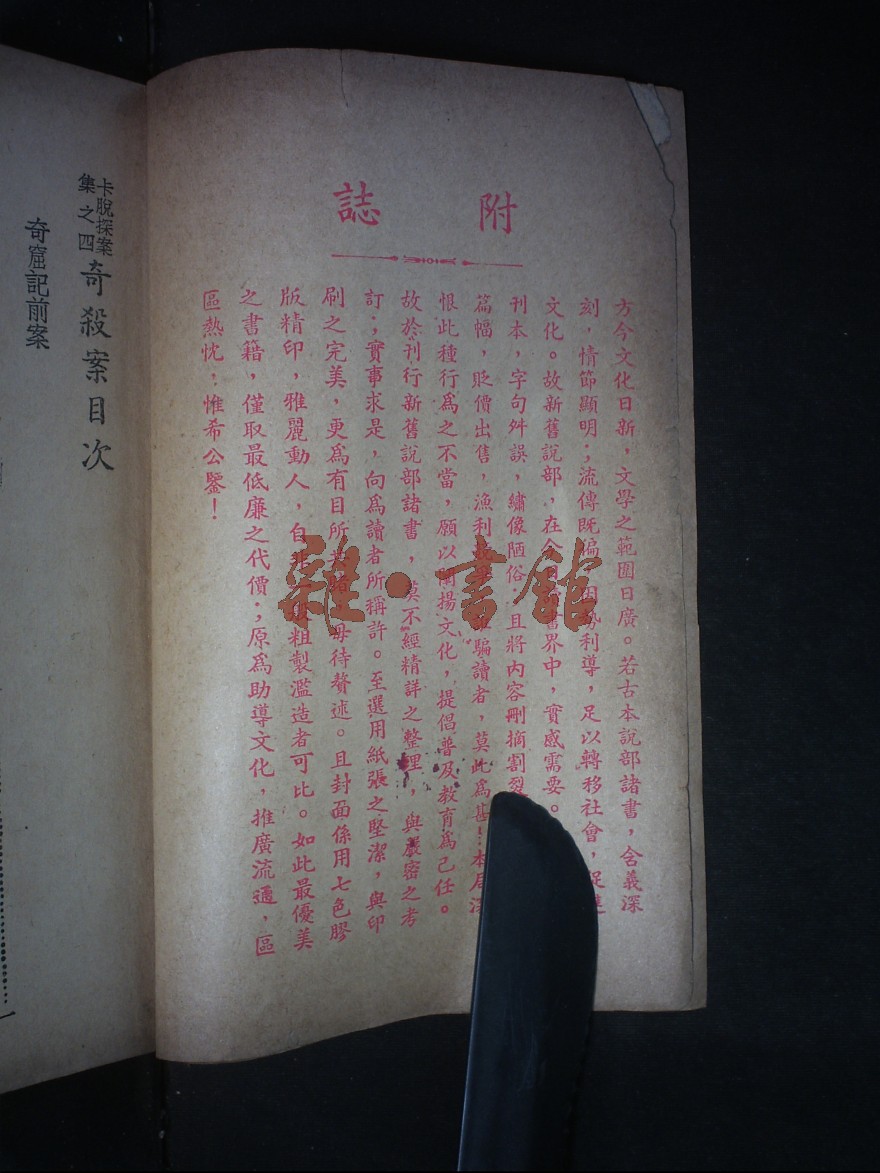 附誌
方今文化日新，文學之範圍日廣。若古本說部諸書，含義深
刻，情節顯明；流傳既徧，因勢利導，足以轉移社會，促進
文化。故新舊說部，在今書界中，實感需要。
刊本，字句舛誤，繡像陋俗，且將內容刪摘割裂
篇幅，貶價出售，漁利騙讀者，莫此爲甚：本局深
恨此種行爲之不當，願以闡揚文化，提倡普及教育爲己任。
故於刊行新舊說部諸書，莫不經精詳之整理，與嚴密之考
訂；實事求是，向爲讀者所稱許。至選用紙張之堅潔，與印
刷之完美，更爲有目所共睹，毋待贅述。且封面係用七色膠
版精印，雅麗動人，自非粗製濫造者可比。如此最優美
之書籍，僅取最低廉之代價；原爲助導文化，推廣流通，區
區熱忱，惟希公鑒！
卡脫探案
集之四
奇殺案目次
奇窟記前案
雜·書館